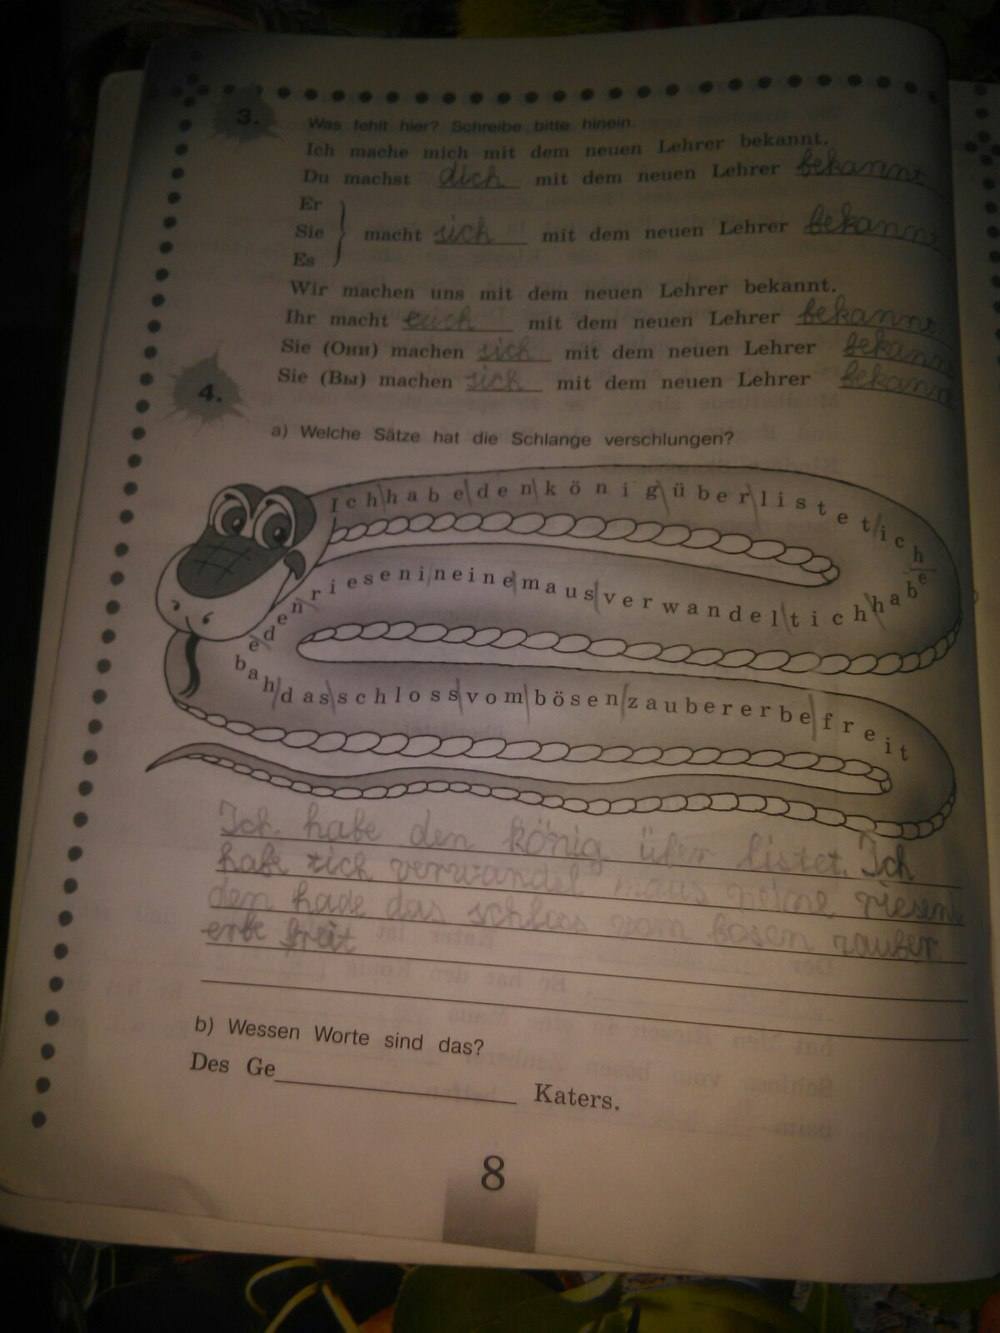 3. Was fehlt hier? Schreibe bitte hinein.
Ich mache mich mit dem neuen Lehrer bekannt.
Du machst dich mit dem neuen Lehrer bekannt
Er
Sie macht sich mit dem neuen Lehrer bekannt
Es
Wir machen uns mit dem neuen Lehrer bekannt.
Ihr macht euch mit dem neuen Lehrer bekannt
Sie (Они) machen sich mit dem neuen Lehrer bekann
Sie (Вы) machen sich mit dem neuen Lehrer bekann
4.
a) Welche Sätze hat die Schlange verschlungen?
Ichhabedenkönigüberlistetichhabe
denriesenineinemausverwandeltichh
abedasschlossvombösenzauberererbefreit
Ich habe den könig über listet. Ich
habe sich verwandel maus neine riesen
dem habe das schloss vom bosen zauber
erbe freit
b) Wessen Worte sind das?
Des Ge Katers.
8